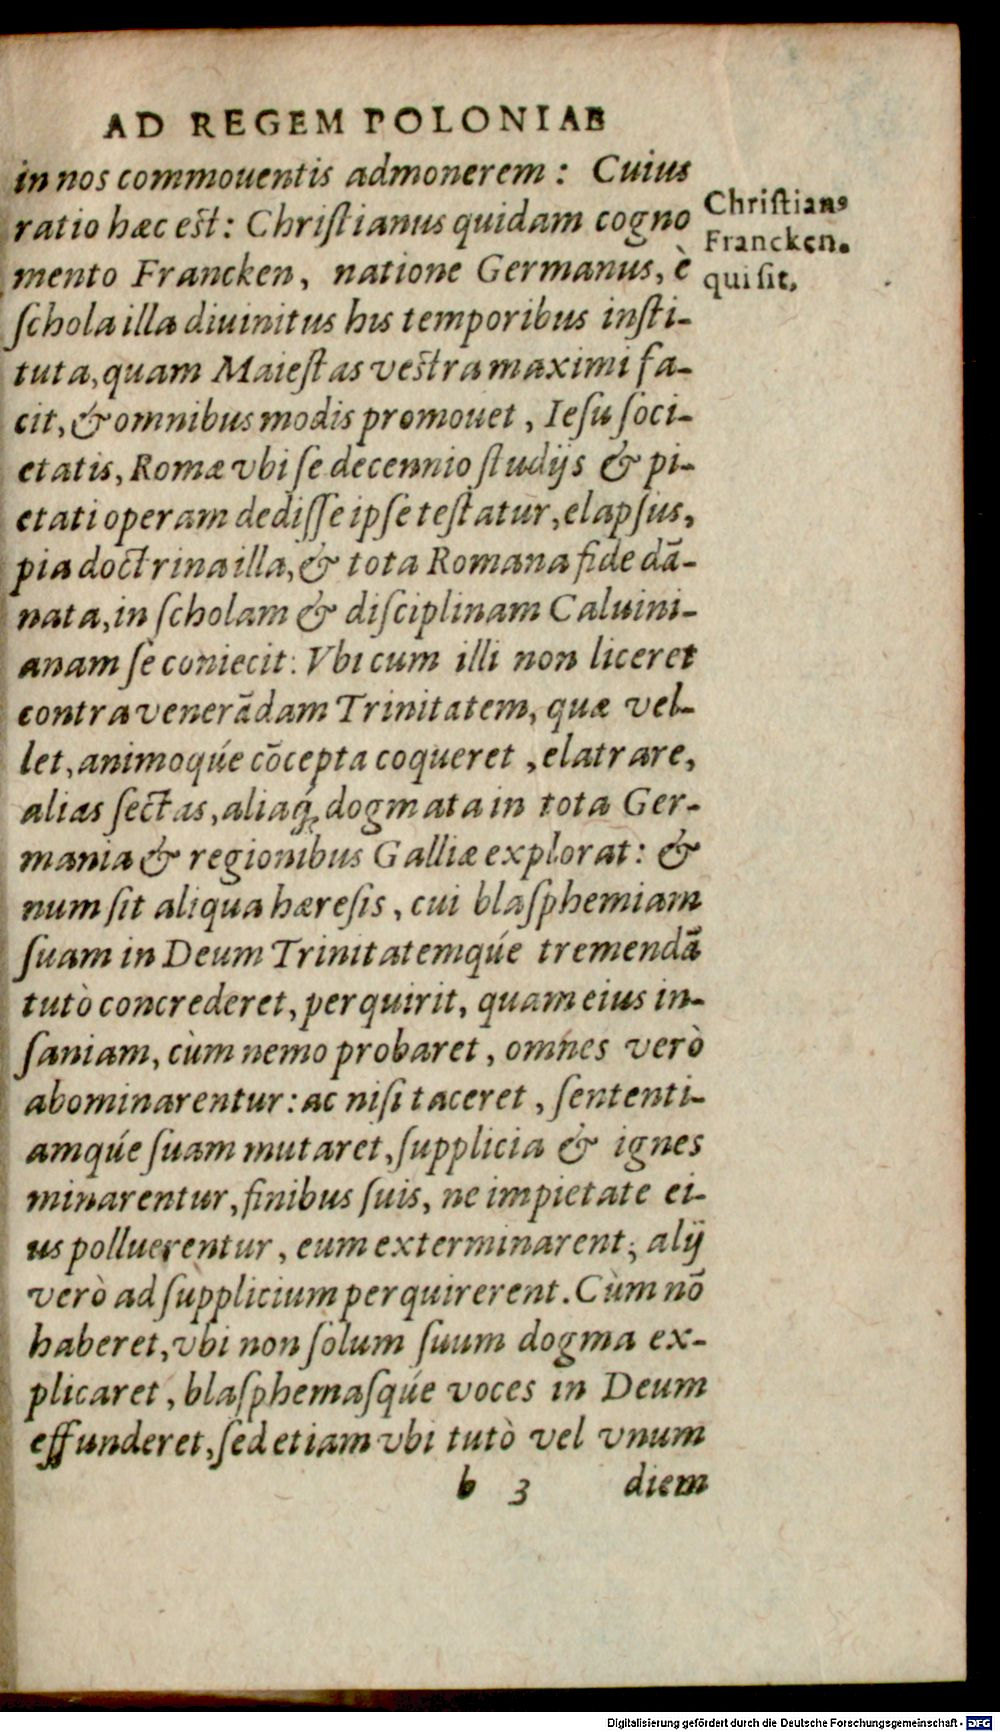 AD REGEM POLONIAE
in nos commouentis admonerem : Cuius
ratio hæc est: Chriſtianus quidam cogno
mento Francken, natione Germanus, è
ſchola illa diuinitus his temporibus inſti-
tuta, quam Maieſtas vestra maximi fa-
cit, & omnibus modis promouet, Ieſu ſoci-
etatis, Romæ vbi ſe decennio ſtudijs & pi-
etati operam dediſſe ipſe teſtatur, elapſus,
pia doctrina illa, & tota Romana fide dã-
nata, in ſcholam & diſciplinam Caluini-
anam ſe coniecit: Vbi cum illi non liceret
contra venerãdam Trinitatem, quæ vel-
let, animoqúe cõcepta coqueret, elatrare,
alias ſectas, aliaq́; dogmata in tota Ger-
mania & regionibus Galliæ explorat: &
num ſit aliqua hæreſis, cui blaſphemiam
ſuam in Deum Trinitatemqúe tremendã
tutò concrederet, perquirit, quam eius in-
ſaniam, cùm nemo probaret, omnes verò
abominarentur: ac niſi taceret, ſententi-
amqúe ſuam mutaret, ſupplicia & ignes
minarentur, finibus ſuis, ne impietate ei-
us polluerentur, eum exterminarent; alij
verò ad ſupplicium perquirerent. Cùm nõ
haberet, vbi non ſolum ſuum dogma ex-
plicaret, blaſphemaſqúe voces in Deum
effunderet, ſed etiam vbi tutò vel vnum
b 3 diem
Chriſtianꝰ
Francken.
qui ſit.
Digitalisierung gefördert durch die Deutsche Forschungsgemeinschaft - DFG